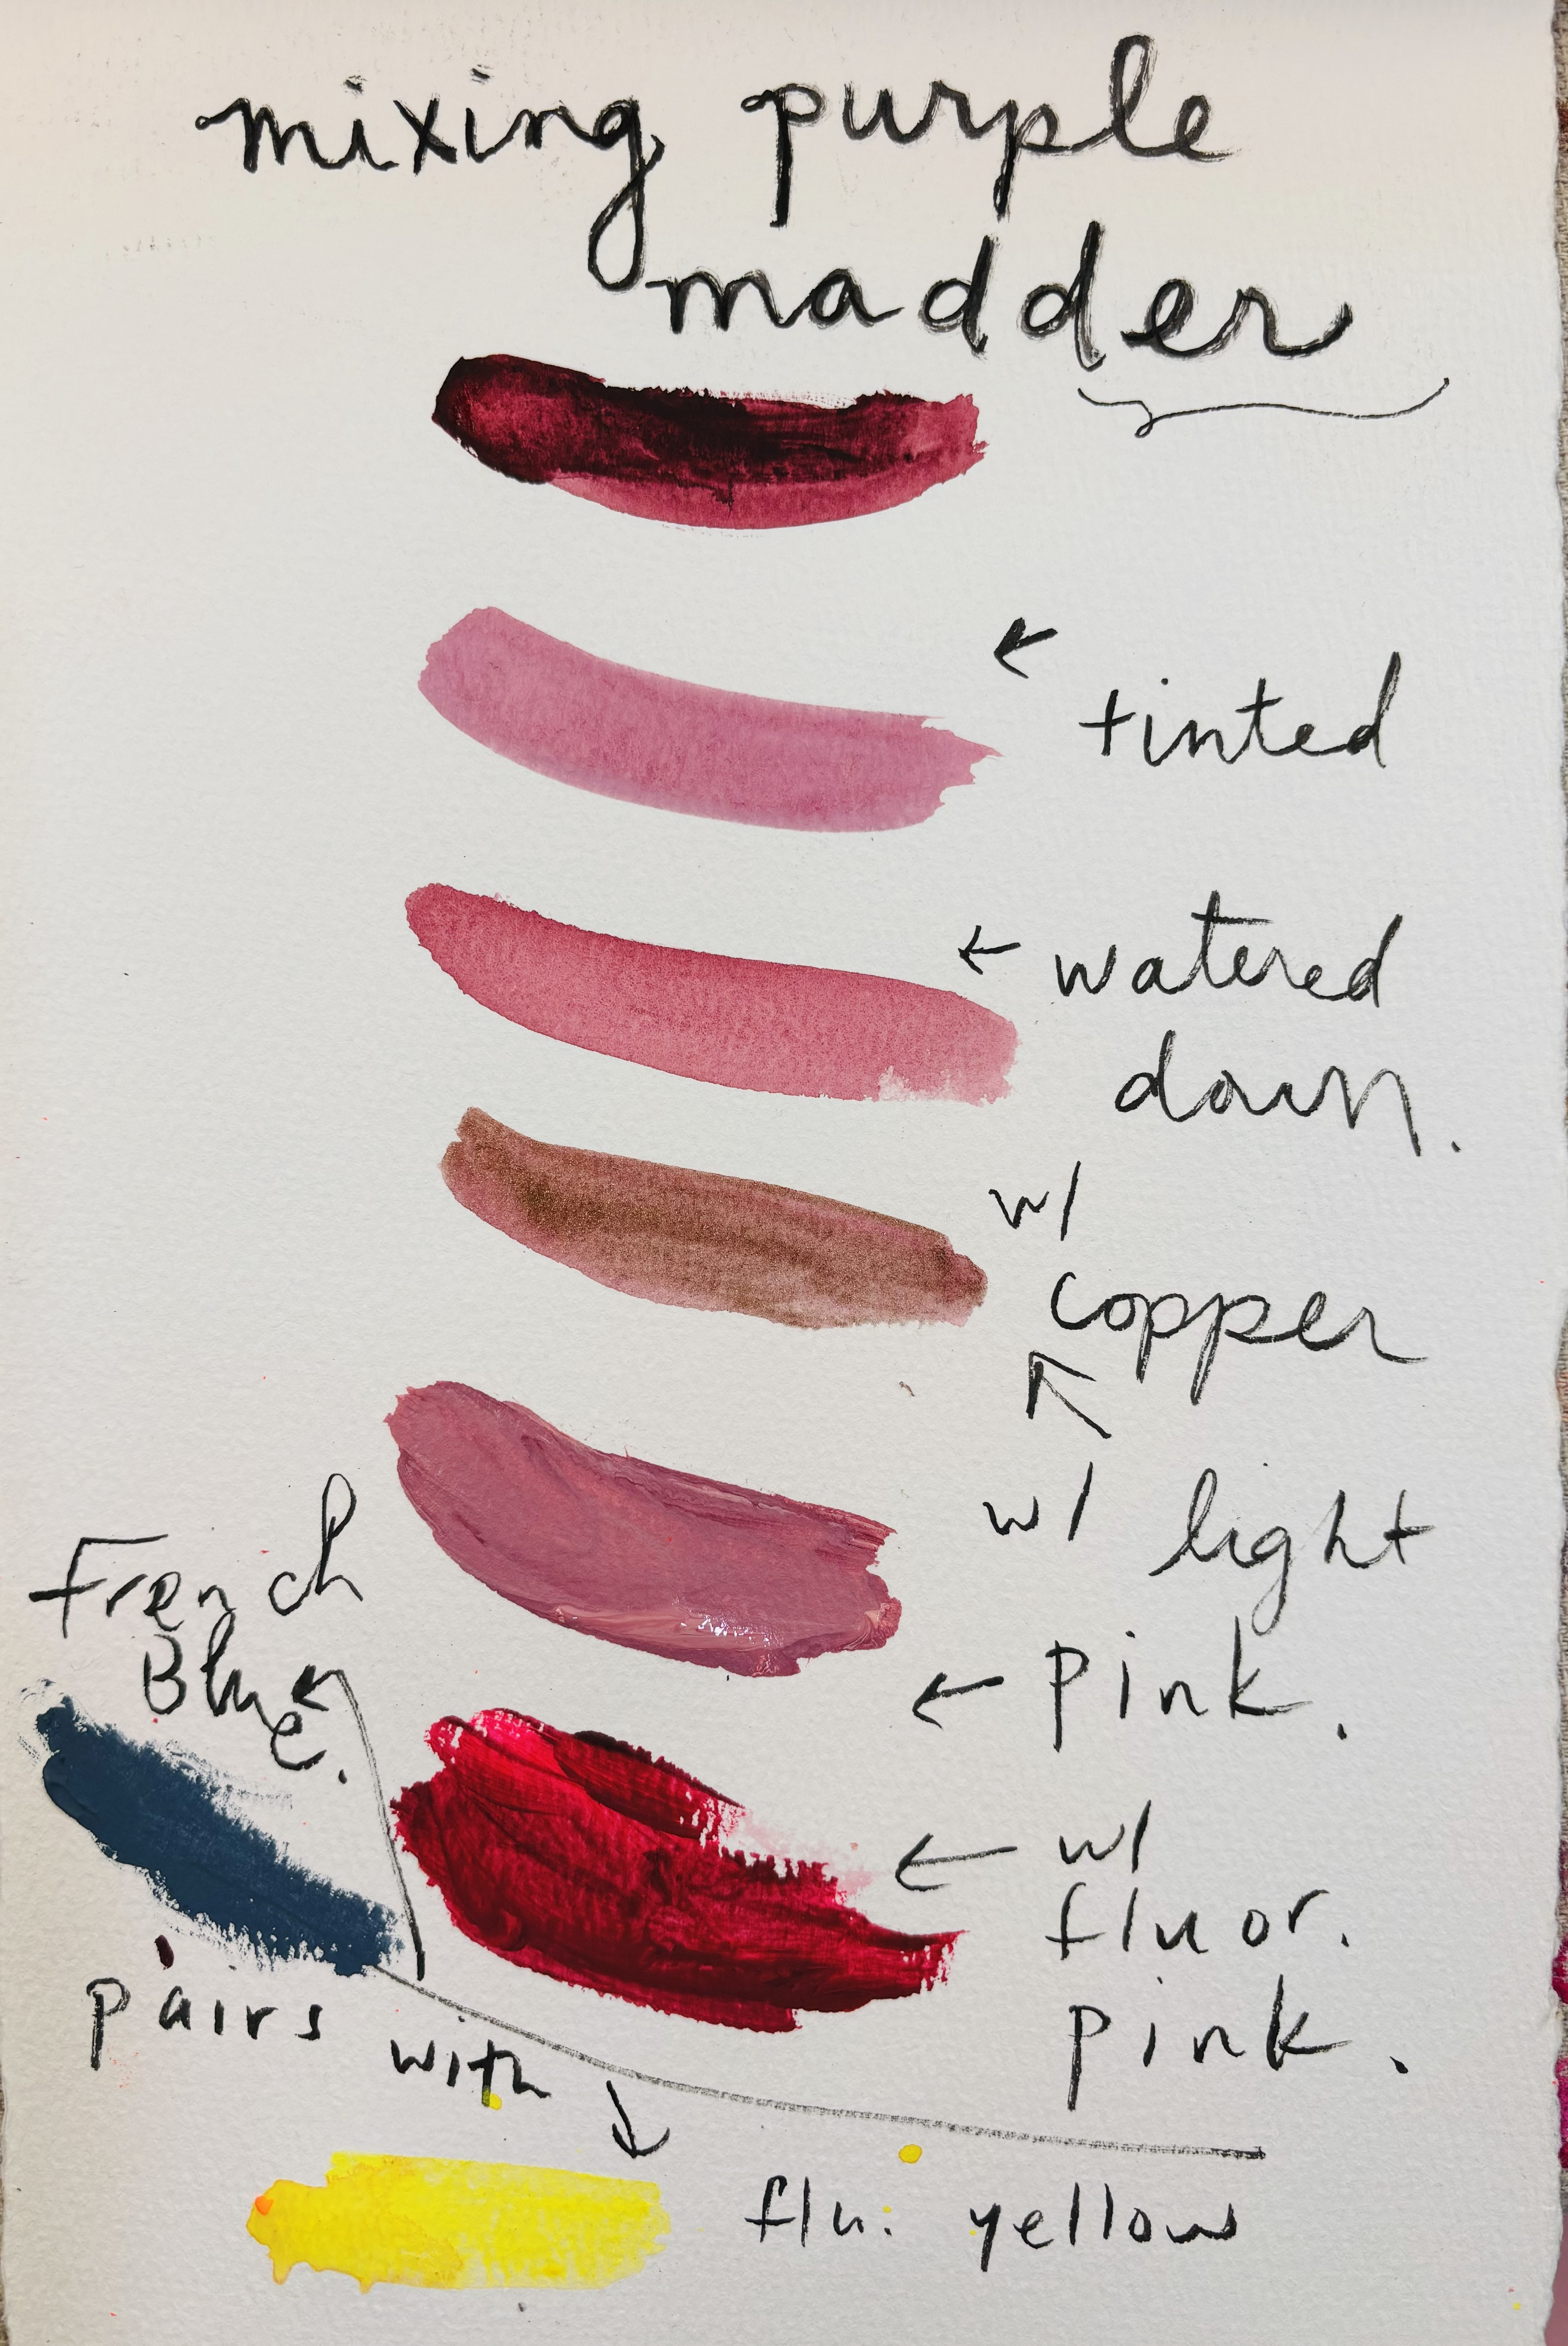 mixing purple
madder
tinted
watered
down.
w/
copper
w/ light
pink.
French
Blue.
w/
fluor.
pink.
pairs with
flu. yellow